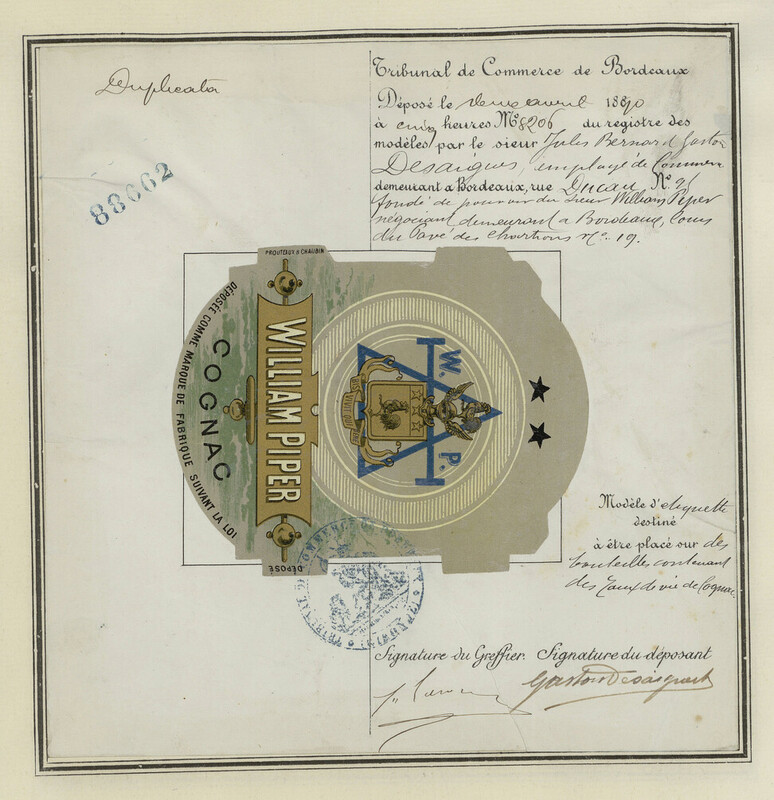 Duplicata
88662
Tribunal de Commerce de Bordeaux
Déposé le deux avril 1880
à cinq heures No 8206 du registre des
modèles par le sieur Jules Bernard Gaston
Desaigues, employé de Commerce
demeurant à Bordeaux, rue Ducau No 91
fondé de pouvoir du Sieur William Piper
négociant demeurant à Bordeaux, Cours
du Pavé des Chartrons No 19.
PROUTEAUX & CHAUBIN
DÉPOSÉE COMME MARQUE DE FABRIQUE SUIVANT LA LOI
COGNAC
WILLIAM PIPER
DÉPOSÉ
W. P.
VIVIT
TRIBUNAL DE COMMERCE DE
Modèle d'étiquette
destiné
à être placé sur des
bouteilles contenant
des Eaux de vie de Cognac.
Signature du Greffier. Signature du déposant